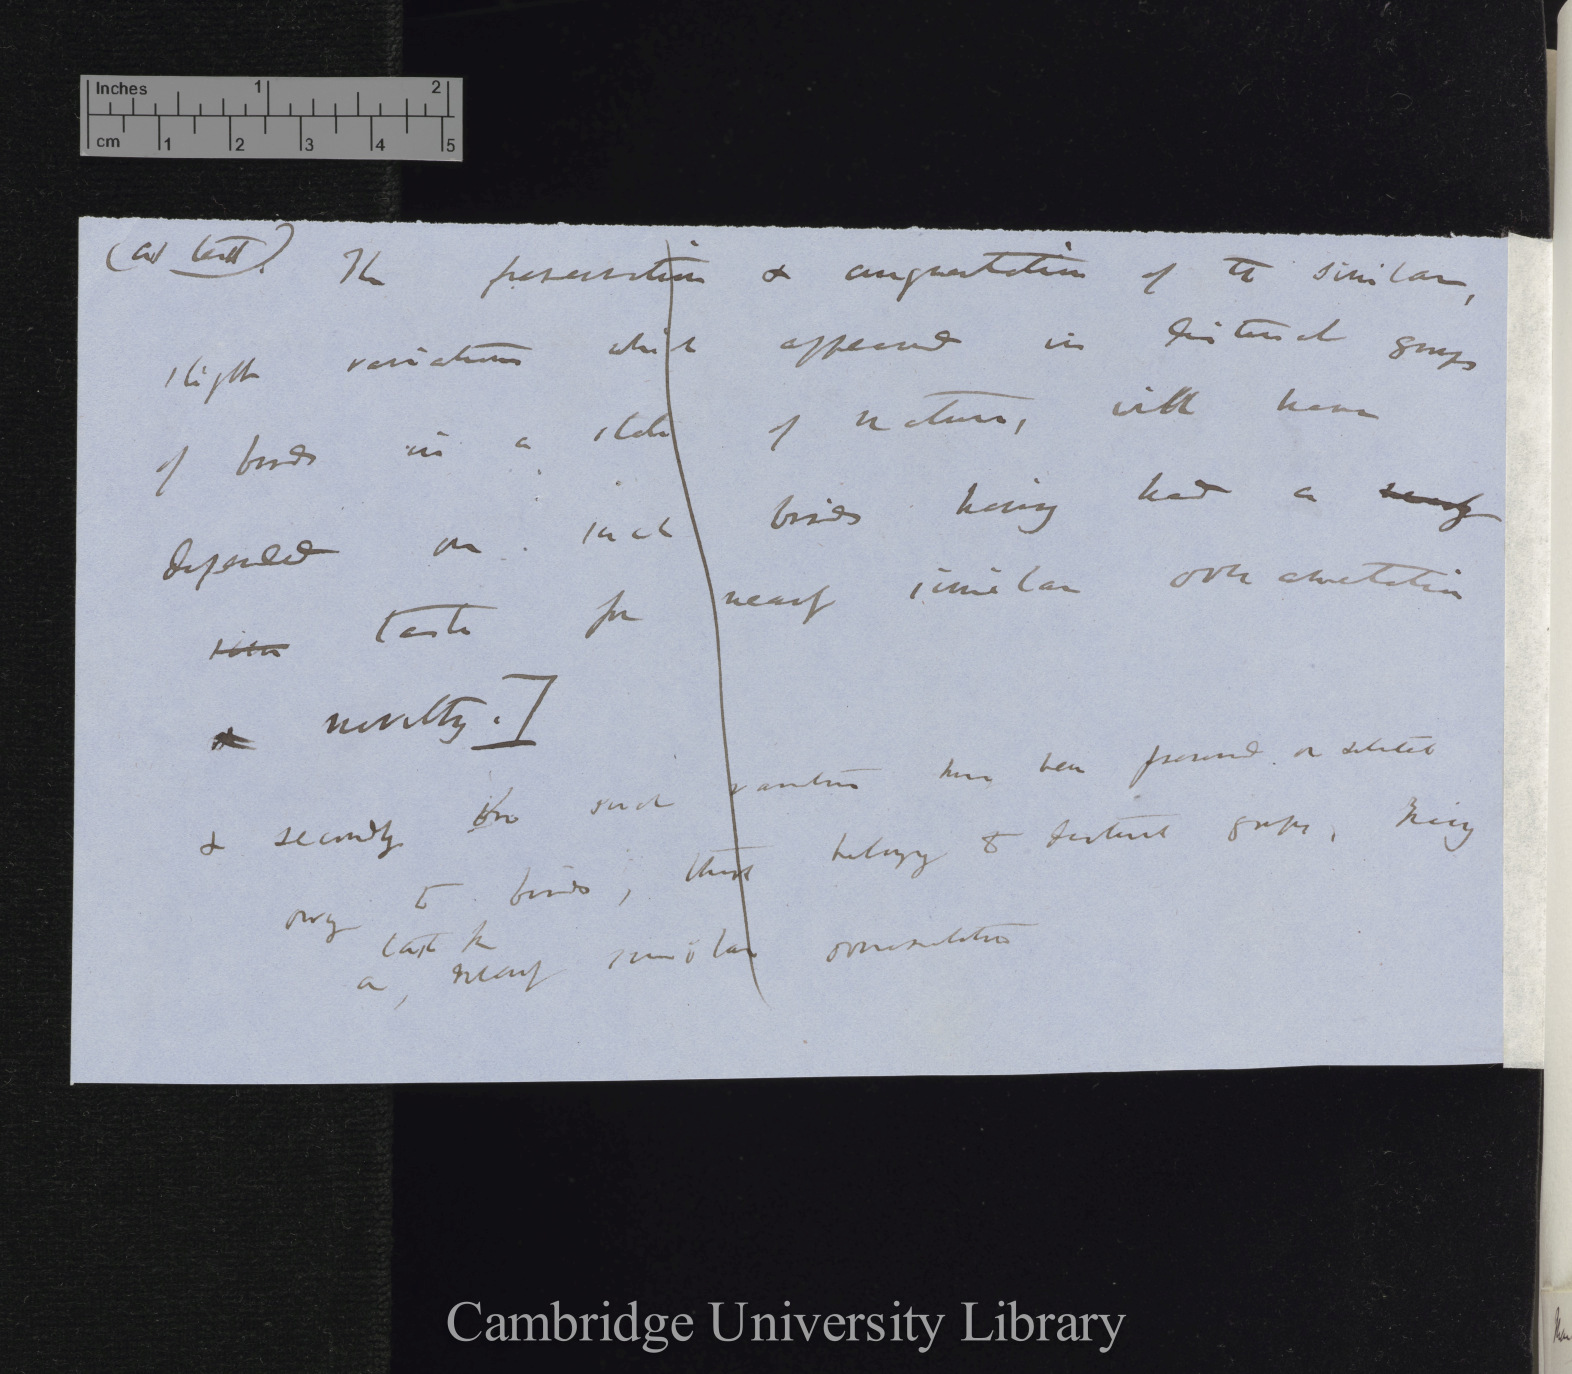 Inches 1 2
cm 1 2 3 4 5
The preservation & augmentation of the similar,
slight variations which appeared in distinct groups
of birds in a state of nature, will have
depended on such birds having had a nearly
taste for nearly similar ornamentation
& novelty.]
& secondly such variations have been preserved or selected
owing to birds, though belonging to distinct groups, having
taste for
a, nearly similar ornamentation
Cambridge University Library